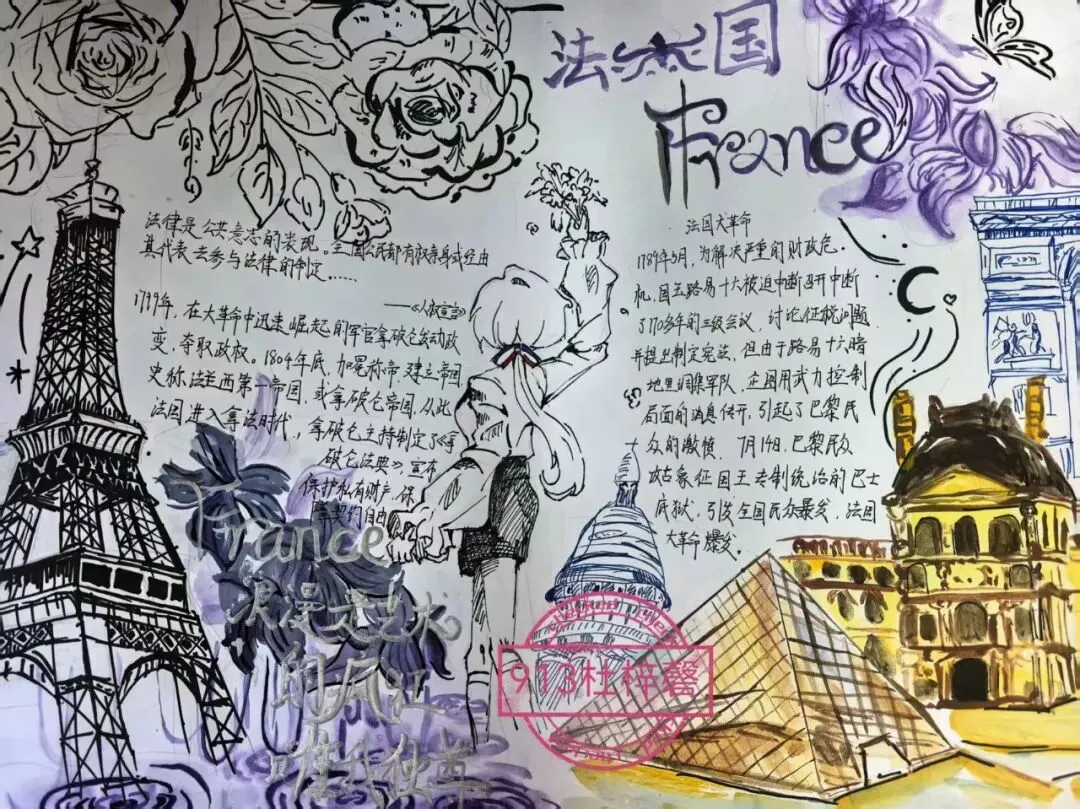 法兰西国
France
法律是公共意志的表现。全国公民都有权亲身或经由
其代表去参与法律的制定……
——《人权宣言》
1799年，在大革命中迅速崛起的军官拿破仑发动政
变，夺取政权。1804年底，加冕称帝，建立帝国
史称法兰西第一帝国，或拿破仑帝国，从此
法国进入拿法时代，拿破仑主持制定了《拿
破仑法典》，宣布
保护私有财产，保
契约自由
法国大革命
1789年5月，为解决严重的财政危
机，国王路易十六被迫中断召开中断
了170多年的三级会议，讨论征税问题
并提出制定宪法，但由于路易十六暗
地里调集军队，企图用武力控制
局面的消息传开，引起了巴黎民
众的激愤，7月14日，巴黎民众
攻占象征国王专制统治的巴士
底狱，引发全国民众暴发，法国
大革命爆发。
France
浪漫之艺术
的风江
唯我独尊
913杜梓馨